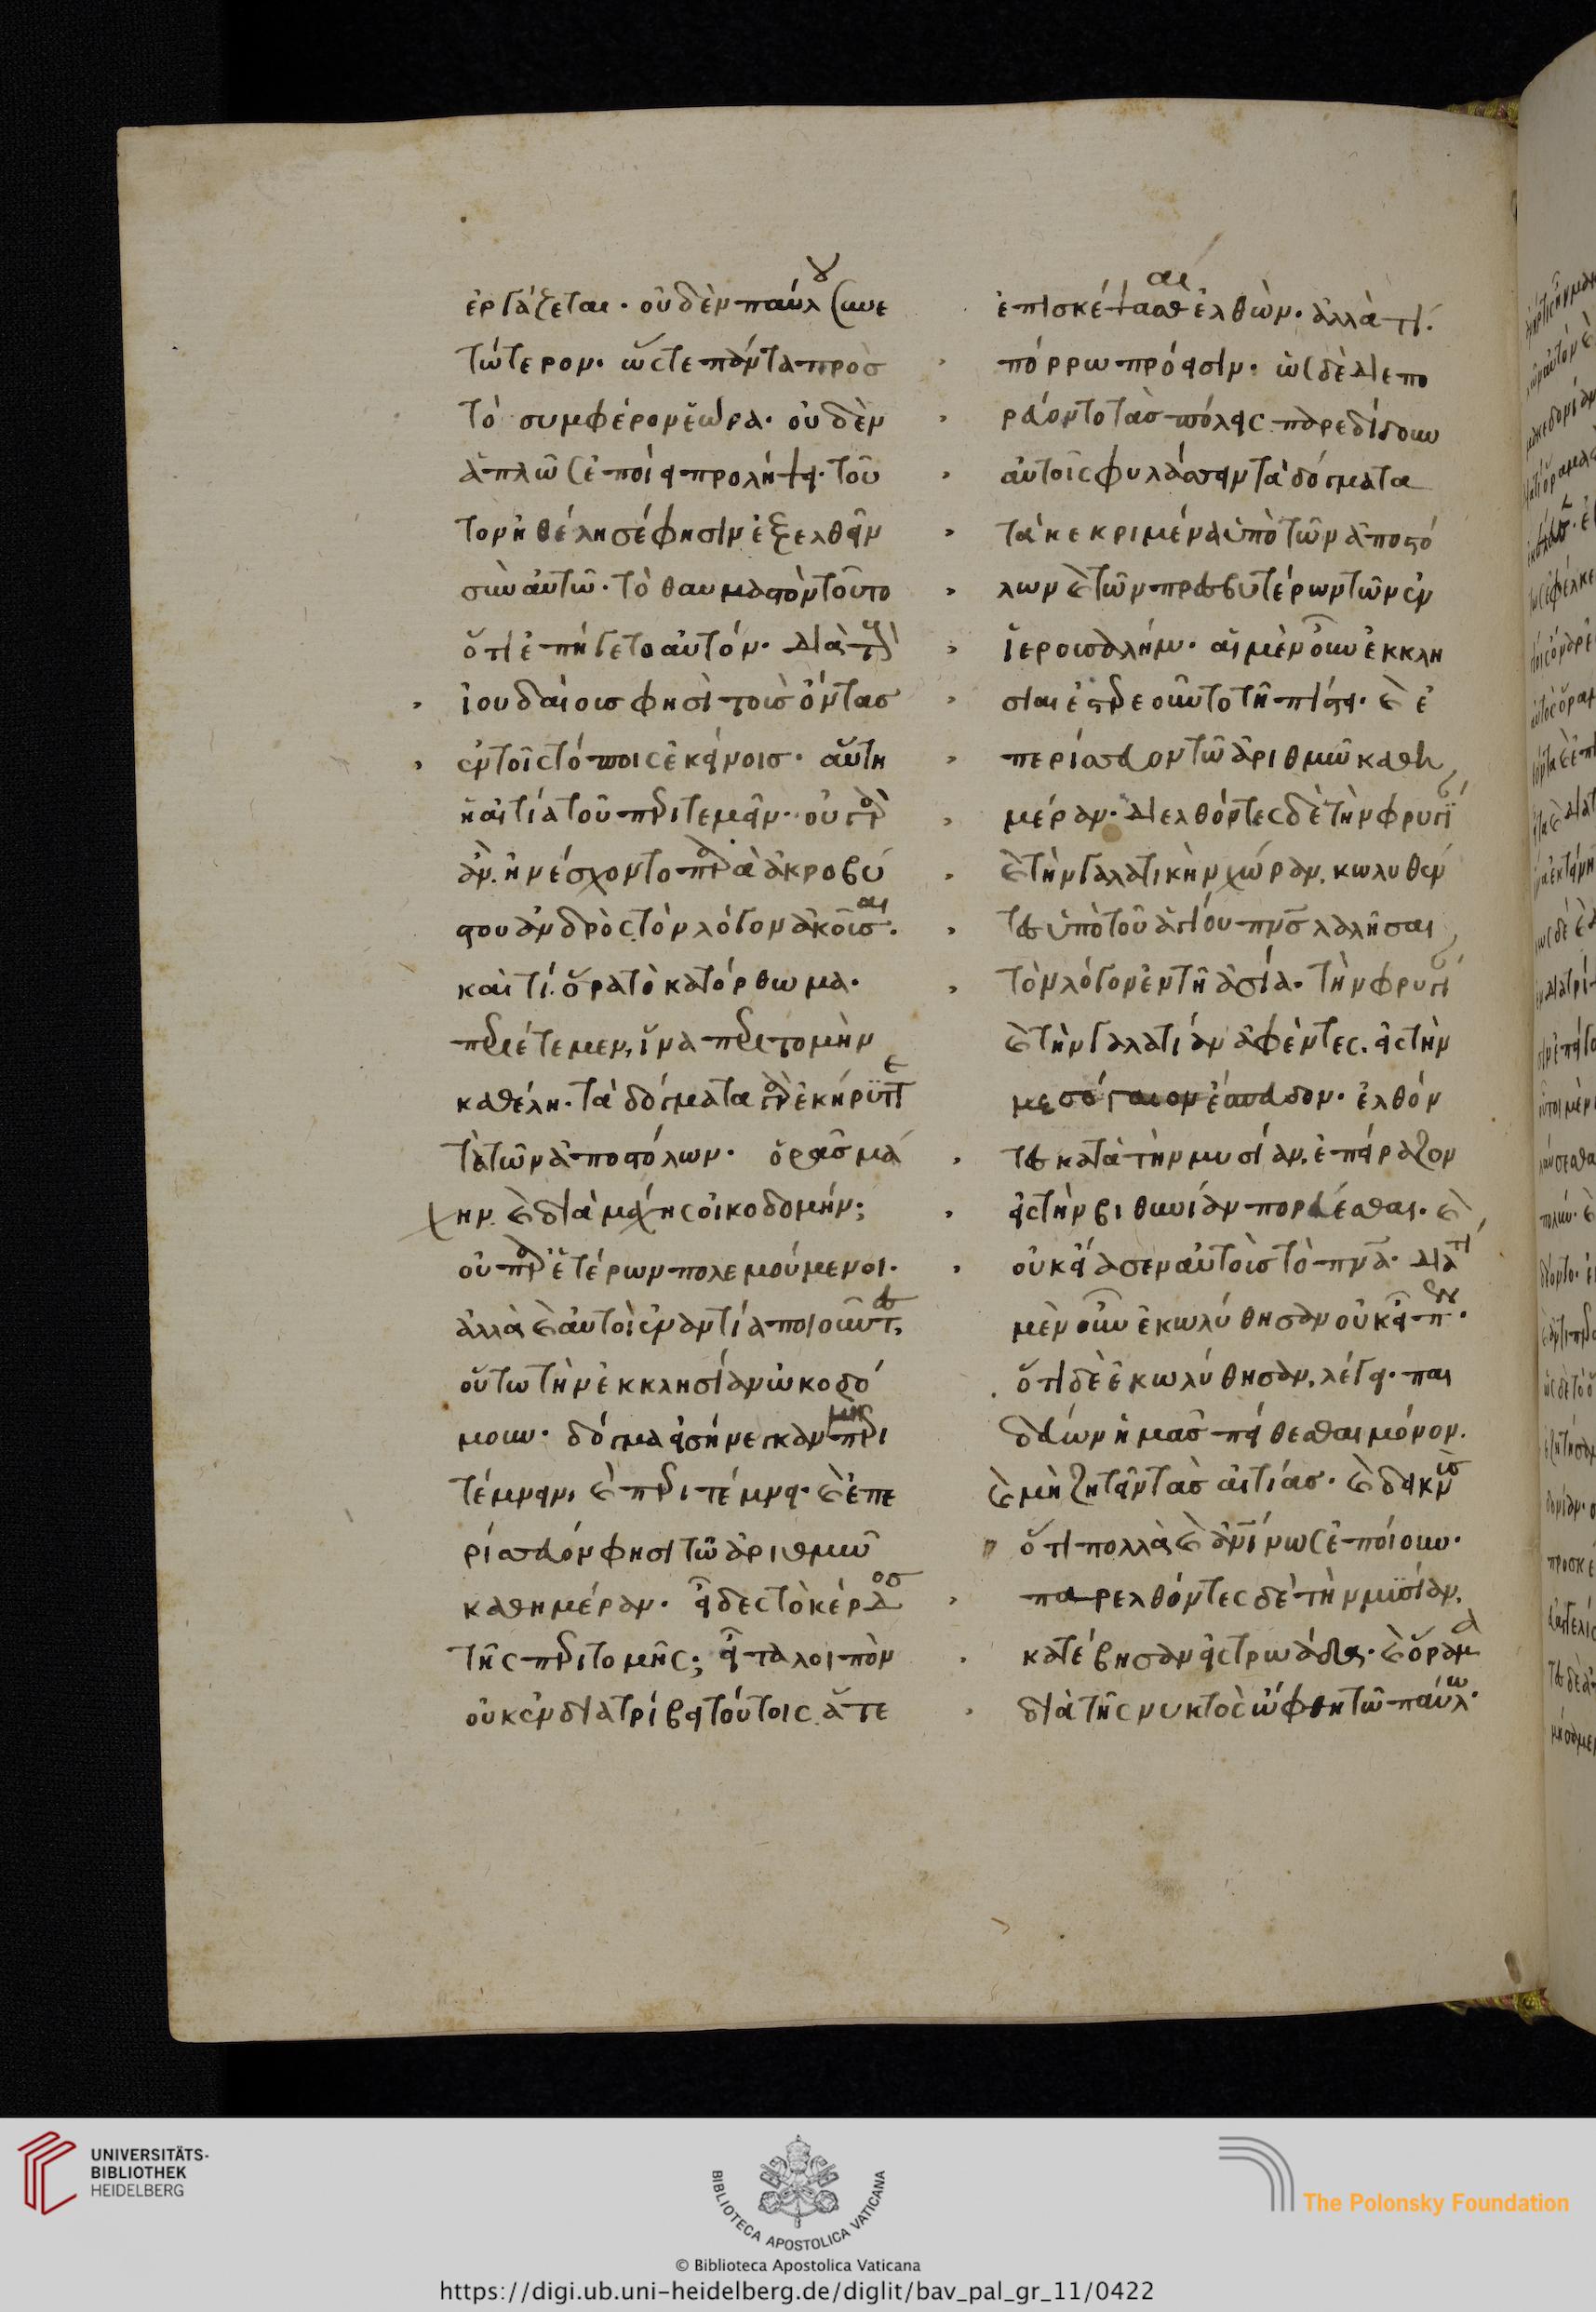 ἐργάζεται. οὐδὲν παύλου συνε
τώτερον. ὥστε πάντα πρὸς
τὸ συμφέρον ἑώρα. οὐδὲν
ἁπλῶς ἐποίει προλήψει. τοῦ
τον ἠθέλησέ φησιν ἐξελθεῖν
σὺν αὐτῶ. τὸ θαυμαστὸν τοῦτο
ὅτι ἐπήγετο αὐτόν. διὰ τοὺς
ἰουδαίους φησὶ τοὺς ὄντας
ἐν τοῖς τόποις ἐκείνοις. αὕτη
ἡ αἰτία τοῦ περιτεμεῖν. οὐ γὰρ
ἂν ἠνέσχοντο παρὰ ἀκροβύ
στου ἀνδρὸς τὸν λόγον ἀκοῦσαι.
καὶ τί. ὅρα τὸ κατόρθωμα.
περιέτεμεν, ἵνα περιτομὴν
καθέλη. τὰ δόγματα γὰρ ἐκήρυττε
τὰ τῶν ἀποστόλων. ὁρᾶς μά
χην. καὶ διὰ μάχης οἰκοδομήν;
οὐ παρ' ἑτέρων πολεμούμενοι.
ἀλλὰ καὶ αὐτοὶ ἐναντία ποιοῦντες,
οὕτω τὴν ἐκκλησίαν ὠκοδό
μουν. δόγμα εἰσήνεγκαν μὴ περι
τέμνειν, καὶ περιτέμνει. καὶ ἐπε
ρίσσευόν φησι τῶ ἀριθμῶ
καθημέραν. εἶδες τὸ κέρδος
τῆς περιτομῆς; εἶτα λοιπὸν
οὐκ ἐνδιατρίβει τούτοις ἅτε
ἐπισκέψασθαι ἐλθών. ἀλλὰ τί.
πόρρω πρόεισιν. ὡς δὲ διεπο
ρεύοντο τὰς πόλεις παρεδίδουν
αὐτοῖς φυλάσσειν τὰ δόγματα
τὰ κεκριμένα ὑπὸ τῶν ἀποστό
λων καὶ τῶν πρεσβυτέρων τῶν ἐν
ἱερουσαλήμ. αἱ μὲν οὖν ἐκκλη
σίαι ἐστερεοῦντο τῆ πίστει. καὶ ἐ
περίσσευον τῶ ἀριθμῶ καθη
μέραν. διελθόντες δὲ τὴν φρυγί
καὶ τὴν γαλατικὴν χώραν, κωλυθέν
τες ὑπὸ τοῦ ἁγίου πνς λαλῆσαι
τὸν λόγον ἐν τῆ ἀσία. τὴν φρυγί
καὶ τὴν γαλατίαν ἀφέντες. εἰς τὴν
μεσόγαιον ἔσπευδον. ἐλθόν
τες κατὰ τὴν μυσίαν, ἐπείραζον
εἰς τὴν βιθυνίαν πορεύεσθαι. καὶ
οὐκ εἴασεν αὐτοὺς τὸ πνα. διατί
μὲν οὖν ἐκωλύθησαν οὐκ εἶπεν.
ὅτι δὲ ἐκωλύθησαν, λέγει. παι
δεύων ἡμᾶς πείθεσθαι μόνον.
καὶ μὴ ζητεῖν τὰς αἰτίας. καὶ δεικνὺς
ὅτι πολλὰ καὶ ἀνίνως ἐποίουν.
παρελθόντες δὲ τὴν μυσίαν,
κατέβησαν εἰς τρωάδα. καὶ ὅραμα
διὰ τῆς νυκτὸς ὤφθη τῶ παύλω.
UNIVERSITÄTS-
BIBLIOTHEK
HEIDELBERG
BIBLIOTECA APOSTOLICA VATICANA
© Biblioteca Apostolica Vaticana
The Polonsky Foundation
https://digi.ub.uni-heidelberg.de/diglit/bav_pal_gr_11/0422